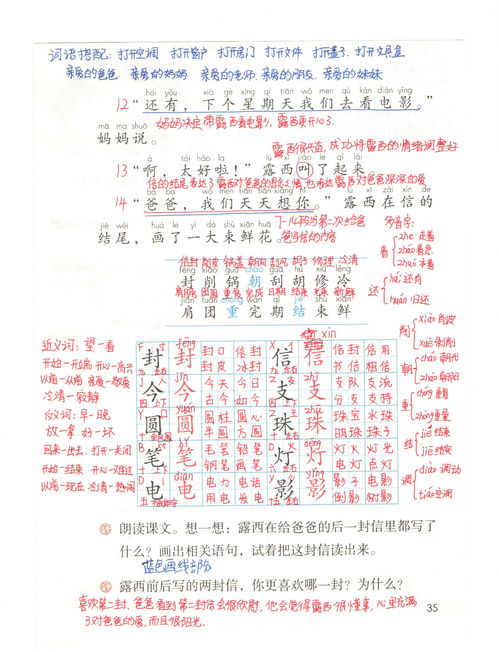 词语搭配：打开空调 打开窗户 打开房门 打开文件 打开盖子 打开文具盒
亲爱的爸爸 亲爱的妈妈 亲爱的老师 亲爱的朋友 亲爱的妹妹
hái yǒu xià gè xīng qī tiān wǒ men qù kàn diàn yǐng
12 “还有，下个星期天我们去看电影。”
妈妈决定带露西看电影，露西要开心了。
mā ma shuō
妈妈说。
13 “啊，太好啦！”露西叫了起来
信的结尾表达了露西对爸爸的思念之情，也表达露西对爸爸深深的爱
bà ba wǒ men tiān tiān xiǎng nǐ lù xī zài xìn de
14 “爸爸，我们天天想你。”露西在信的
jié wěi huà le yí dà shù xiān huā
结尾，画了一大束鲜花。
7-14段为第二次给爸爸写信的内容
多音字：
着 zhe 走着
zháo 着急
还 hái 还有
huán 归还
fēng xiāo guō cháo guā hú xiū lěng
封削锅朝刮胡修冷
jiān tuán chóng wán qī jié shù xiān
肩团重完期结束鲜
削 xiāo 削皮
xuē 剥削
朝 cháo 朝代
zhāo 朝阳
重
zhòng 重量
结 jiē 结果
jié 结束
调 diào 调动
tiáo 空调
近义词：望—看
开始—开端 开心—高兴
以前—从前 亲爱—敬爱
冷清—寂静
反义词：早—晚
放—拿 好—坏
回来—出去 打开—关闭
开始—结束 开心—难过
以前—现在 冷清—热闹
封 fēng 封 封口 信封 封皮 冰封
信 xìn 信 信封 信用 书信 相信
今 jīn 今 今天 今日 古今 如今
支 支 支队 支流 支出 支持
圆 yuán 圆 圆柱 圆心 半圆 方圆
珠 珠 珠宝 水珠 明珠 珠子
笔 bǐ 笔 毛笔 铅笔 钢笔 笔画
灯 dēng 灯 灯火 灯光 电灯 点灯
电 diàn 电 电力 电话 用电 发电
影 yǐng 影 影子 电影 倒影 树影
朗读课文。想一想：露西在给爸爸的后一封信里都写了
什么？画出相关语句，试着把这封信读出来。
蓝色画线部分
露西前后写的两封信，你更喜欢哪一封？为什么？
喜欢第二封，爸爸看到第二封信会很欣慰，他会觉得露西很懂事，心里充满
了对爸爸的爱，而且很阳光。
35